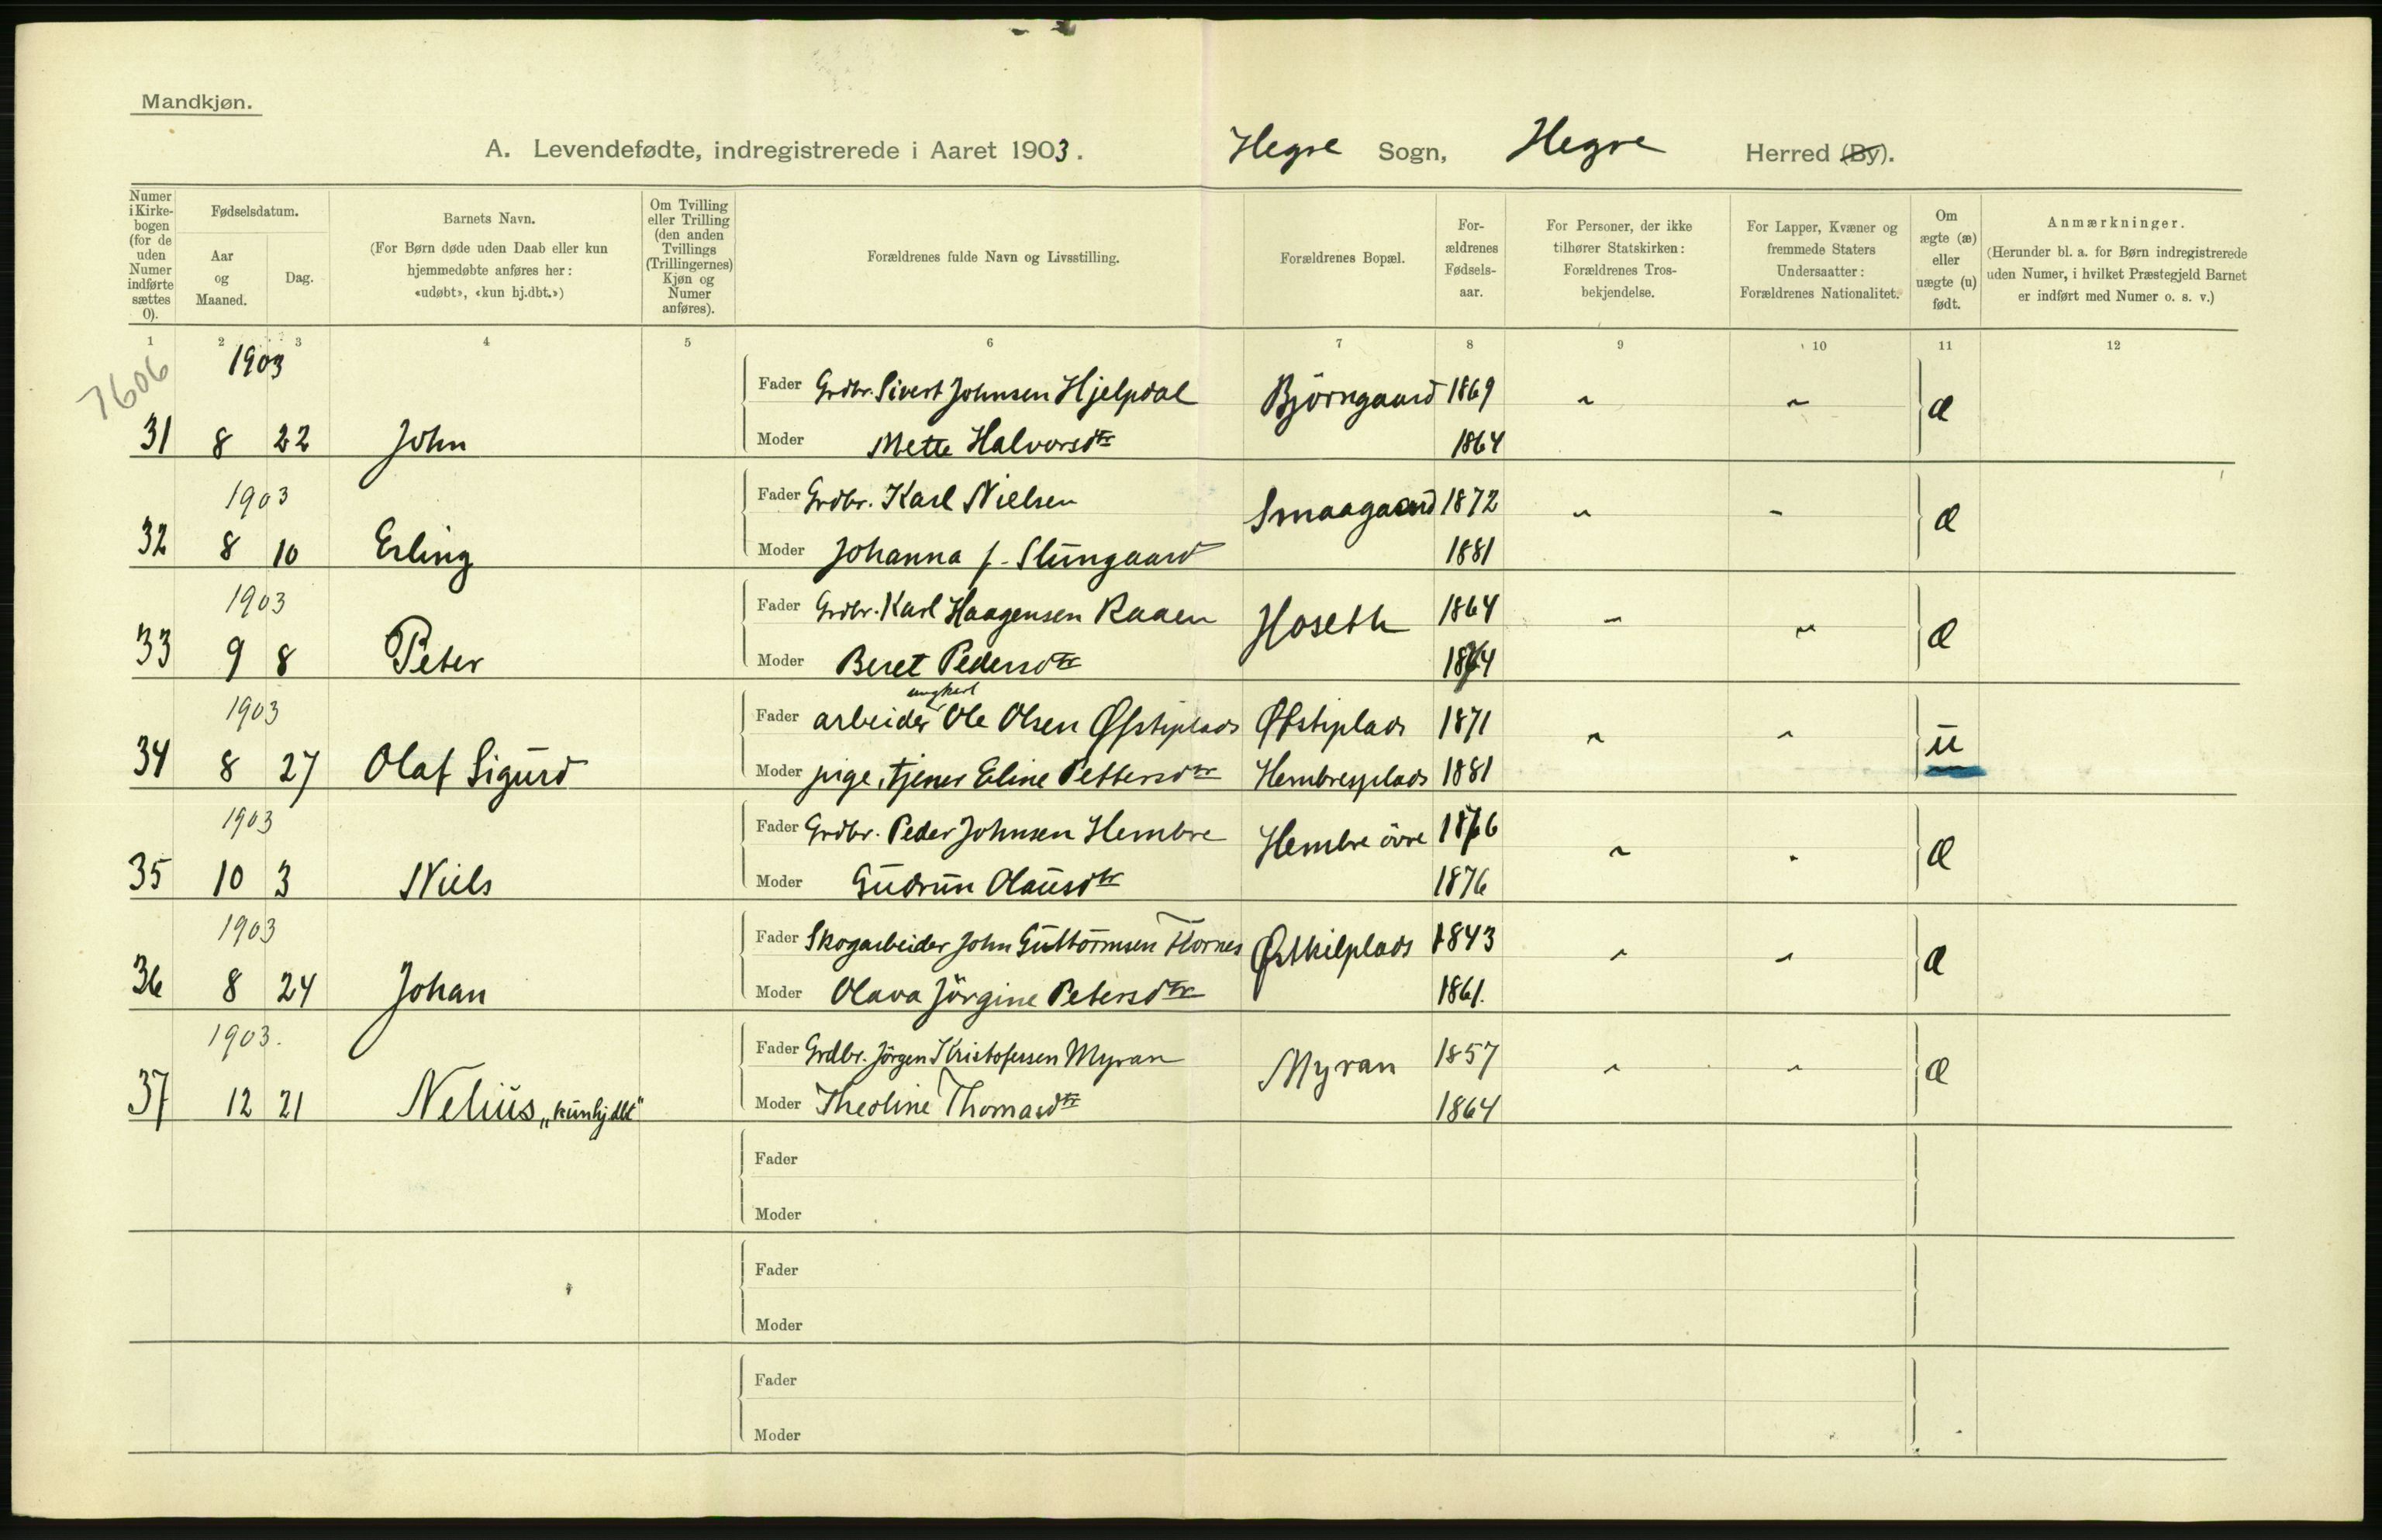 Mandkjøn.
A. Levendefødte, indregistrerede i Aaret 1903. Hegre Sogn, Hegre Herred (By).
Numer i Kirke-bogen (for de uden Numer indførte sættes 0).
Fødselsdatum.
Aar og Maaned.
Dag.
Barnets Navn.
(For Børn døde uden Daab eller kun hjemmedøbte anføres her: «udøbt», «kun hj.dbt.»)
Om Tvilling eller Trilling (den anden Tvillings (Trillingernes) Kjøn og Numer anføres).
Forældrenes fulde Navn og Livsstilling.
Forældrenes Bopæl.
For-ældrenes Fødsels-aar.
For Personer, der ikke tilhører Statskirken: Forældrenes Tros-bekjendelse.
For Lapper, Kvæner og fremmede Staters Undersaatter: Forældrenes Nationalitet.
Om ægte (æ) eller uægte (u) født.
Anmærkninger.
(Herunder bl. a. for Børn indregistrerede uden Numer, i hvilket Præstegjeld Barnet er indført med Numer o. s. v.)
1 2 3 4 5 6 7 8 9 10 11 12
7606
1903
Fader Grdbr. Sivert Johnsen Hjelpdal Björngaard 1869 " " æ
31 8 22 John Moder Mette Halvorsdtr 1864
1903
Fader Grdbr. Karl Nielsen Smaagaard 1872 " " æ
32 8 10 Erling Moder Johanna f. Slungaard 1881
1903
Fader Grdbr. Karl Haagensen Raaen Hoseth 1864 " " æ
33 9 8 Peter Moder Beret Pedersdtr 1864
1903
ungkarl
Fader arbeider Ole Olsen Øfstiplads Øfstiplads 1871 " " u
34 8 27 Olaf Sigurd Moder pige, tjener Eline Pettersdtr Hembresplads 1881
1903
Fader Grdbr. Peder Johnsen Hembre Hembre övre 1876 " " æ
35 10 3 Niels Moder Gudrun Olausdtr 1876
1903
Fader Skogarbeider John Guttormsen Flornes Østkilplads 1843 " " æ
36 8 24 Johan Moder Olava Jörgine Petersdtr 1861.
1903.
Fader Grdbr. Jörgen Kristofersen Myran Myran 1857 " " æ
37 12 21 Nelius „kun hj dbt" Moder Theoline Thomasdtr 1864
Fader
Moder
Fader
Moder
Fader
Moder